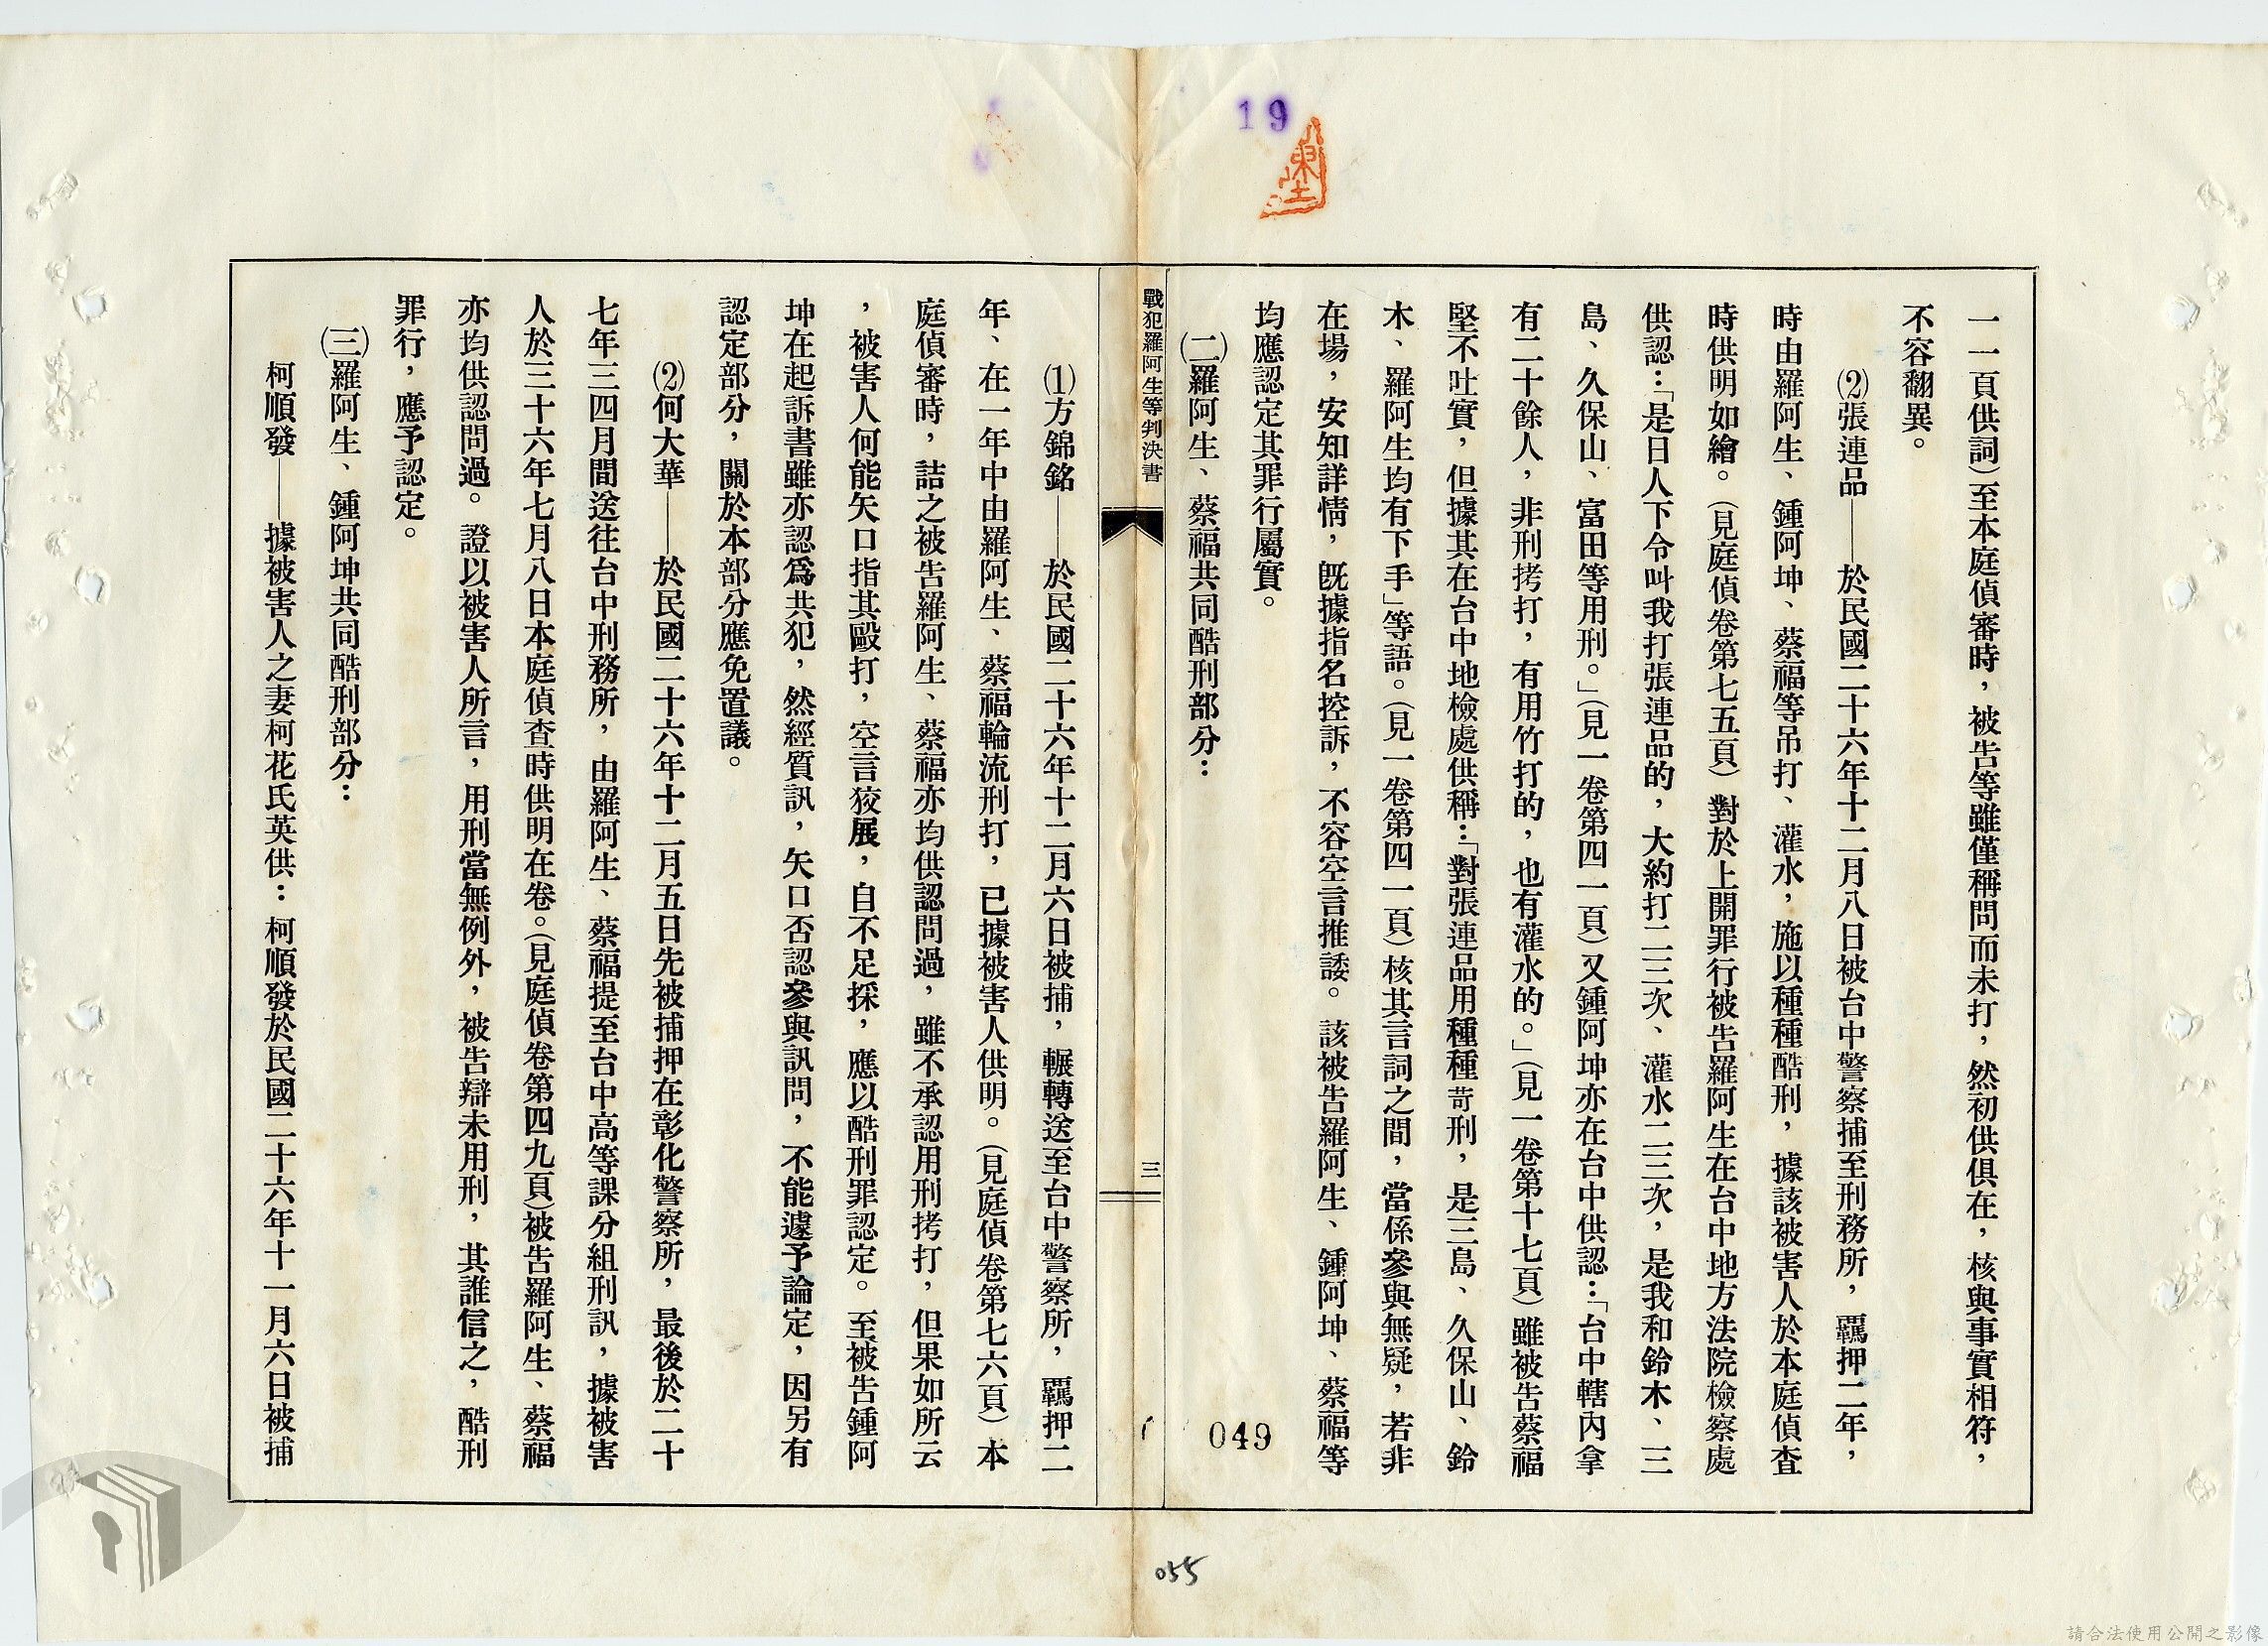 19
一一頁供詞)至本庭偵審時，被告等雖僅稱問而未打，然初供俱在，核與事實相符，
不容翻異。
⑵張連品——於民國二十六年十二月八日被台中警察捕至刑務所，羈押二年，
時由羅阿生、鍾阿坤、蔡福等吊打、灌水，施以種種酷刑，據該被害人於本庭偵查
時供明如繪。(見庭偵卷第七五頁)對於上開罪行被告羅阿生在台中地方法院檢察處
供認：「是日人下令叫我打張連品的，大約打二三次、灌水二三次，是我和鈴木、三
島、久保山、富田等用刑。」(見一卷第四一頁)又鍾阿坤亦在台中供認：「台中轄內拿
有二十餘人，非刑拷打，有用竹打的，也有灌水的。」(見一卷第十七頁)雖被告蔡福
堅不吐實，但據其在台中地檢處供稱：「對張連品用種種苛刑，是三島、久保山、鈴
木、羅阿生均有下手」等語。(見一卷第四一頁)核其言詞之間，當係參與無疑，若非
在場，安知詳情，既據指名控訴，不容空言推諉。該被告羅阿生、鍾阿坤、蔡福等
均應認定其罪行屬實。
㈡羅阿生、蔡福共同酷刑部分：
049
戰犯羅阿生等判決書
三
⑴方錦銘——於民國二十六年十二月六日被捕，輾轉送至台中警察所，羈押二
年、在一年中由羅阿生、蔡福輪流刑打，已據被害人供明。(見庭偵卷第七六頁)本
庭偵審時，詰之被告羅阿生、蔡福亦均供認問過，雖不承認用刑拷打，但果如所云
，被害人何能矢口指其毆打，空言狡展，自不足採，應以酷刑罪認定。至被告鍾阿
坤在起訴書雖亦認爲共犯，然經質訊，矢口否認參與訊問，不能遽予論定，因另有
認定部分，關於本部分應免置議。
⑵何大華——於民國二十六年十二月五日先被捕押在彰化警察所，最後於二十
七年三四月間送往台中刑務所，由羅阿生、蔡福提至台中高等課分組刑訊，據被害
人於三十六年七月八日本庭偵查時供明在卷。(見庭偵卷第四九頁)被告羅阿生、蔡福
亦均供認問過。證以被害人所言，用刑當無例外，被告辯未用刑，其誰信之，酷刑
罪行，應予認定。
㈢羅阿生、鍾阿坤共同酷刑部分：
柯順發——據被害人之妻柯花氏英供：柯順發於民國二十六年十一月六日被捕
055
請合法使用公開之影像